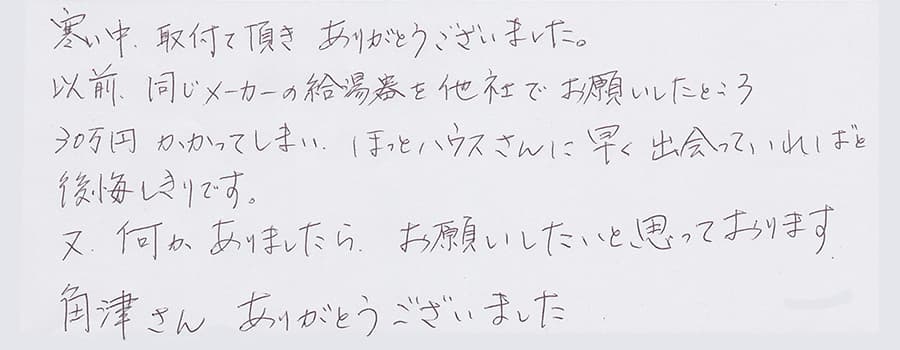 寒い中、取付て頂き ありがとうございました。
以前、同じメーカーの給湯器を他社で お願いしたところ
30万円 かかってしまい、ほっとハウスさんに 早く 出会っていればと
後悔しきりです。
又、何か ありましたら、お願いしたいと思っております
角津さん ありがとうございました